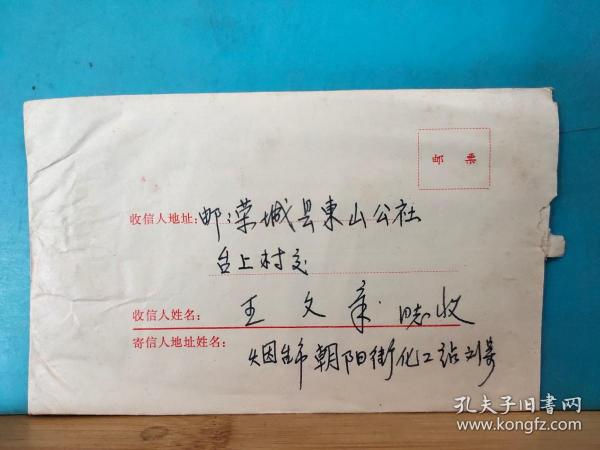 邮票
收信人地址:邮:荣城县東山公社
台上村交
收信人姓名:王文章 同志收
寄信人地址姓名:
烟台市朝阳街化工站刘寄
孔夫子旧書网
www.kongfz.com